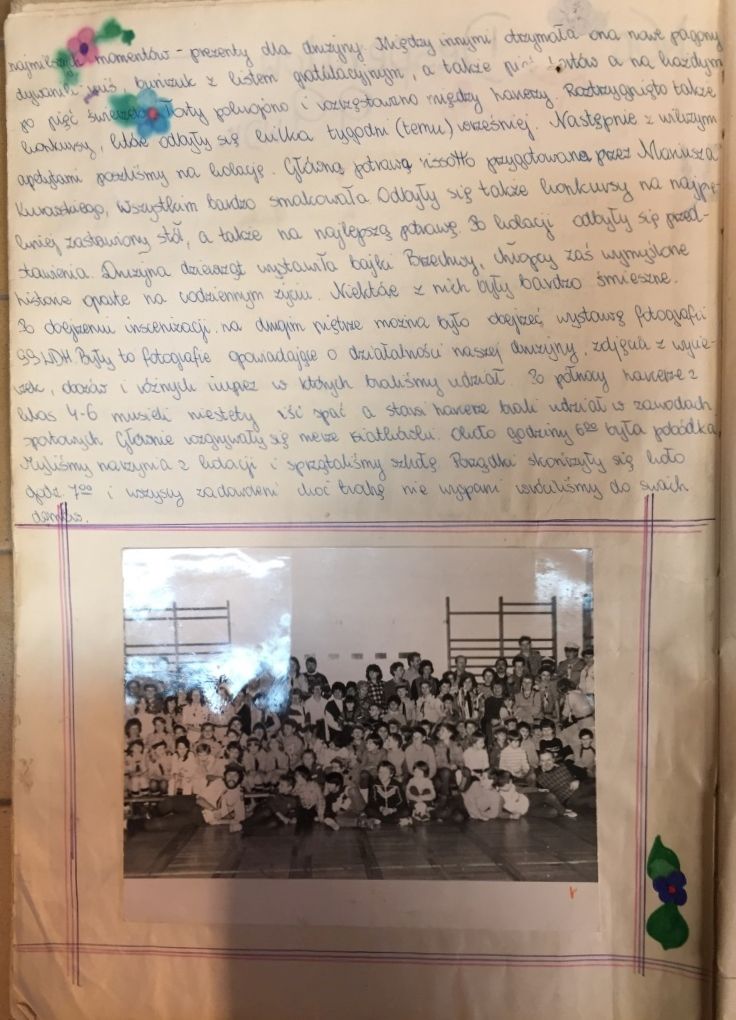 najmilszych momentów - prezenty dla drużyny. Między innymi otrzymała ona nowe pagony
dywanik, buńczuk z listem gratulacyjnym, a także pięć tortów a na każdym
po pięć świeczek. Torty pokrojono i rozczęstowano między harcerzy. Roztrzygnięto także
konkursy, które odbyły się kilka tygodni (temu) wcześniej. Następnie z wilczym
apetytami poszliśmy na kolację. Główną potrawą risotto przygotowana przez Mariusza
wszystkim bardzo smakowała. Odbyły się także konkursy na najpię-
kniej zastawiony stół, a także na najlepszą potrawę. Po kolacji odbyły się przed-
stawienia. Drużyna dziewcząt wystawiła bajki Brzechwy, chłopcy zaś wymyślone
historie oparte na codziennym życiu. Niektóre z nich były bardzo śmieszne.
Po obejrzeniu inscenizacji na drugim piętrze można było obejrzeć wystawę fotografii
99 ŁDH. Były to fotografie opowiadające o działalności naszej drużyny, zdjęcia z wycie-
czek, obozów i różnych imprez w których braliśmy udział. Po północy harcerze z
klas 4-6 musieli niestety iść spać a starsi harcerze brali udział w zawodach
sportowych. Głównie rozgrywały się mecze siatkówki. Około godziny 6⁰⁰ była pobódka.
Myliśmy naczynia z kolacji i sprzątaliśmy szkołę. Porządki skończyły się koło
godz. 7⁰⁰ i wszyscy zadowoleni choć trochę nie wyspani wróciliśmy do swoich
domów.